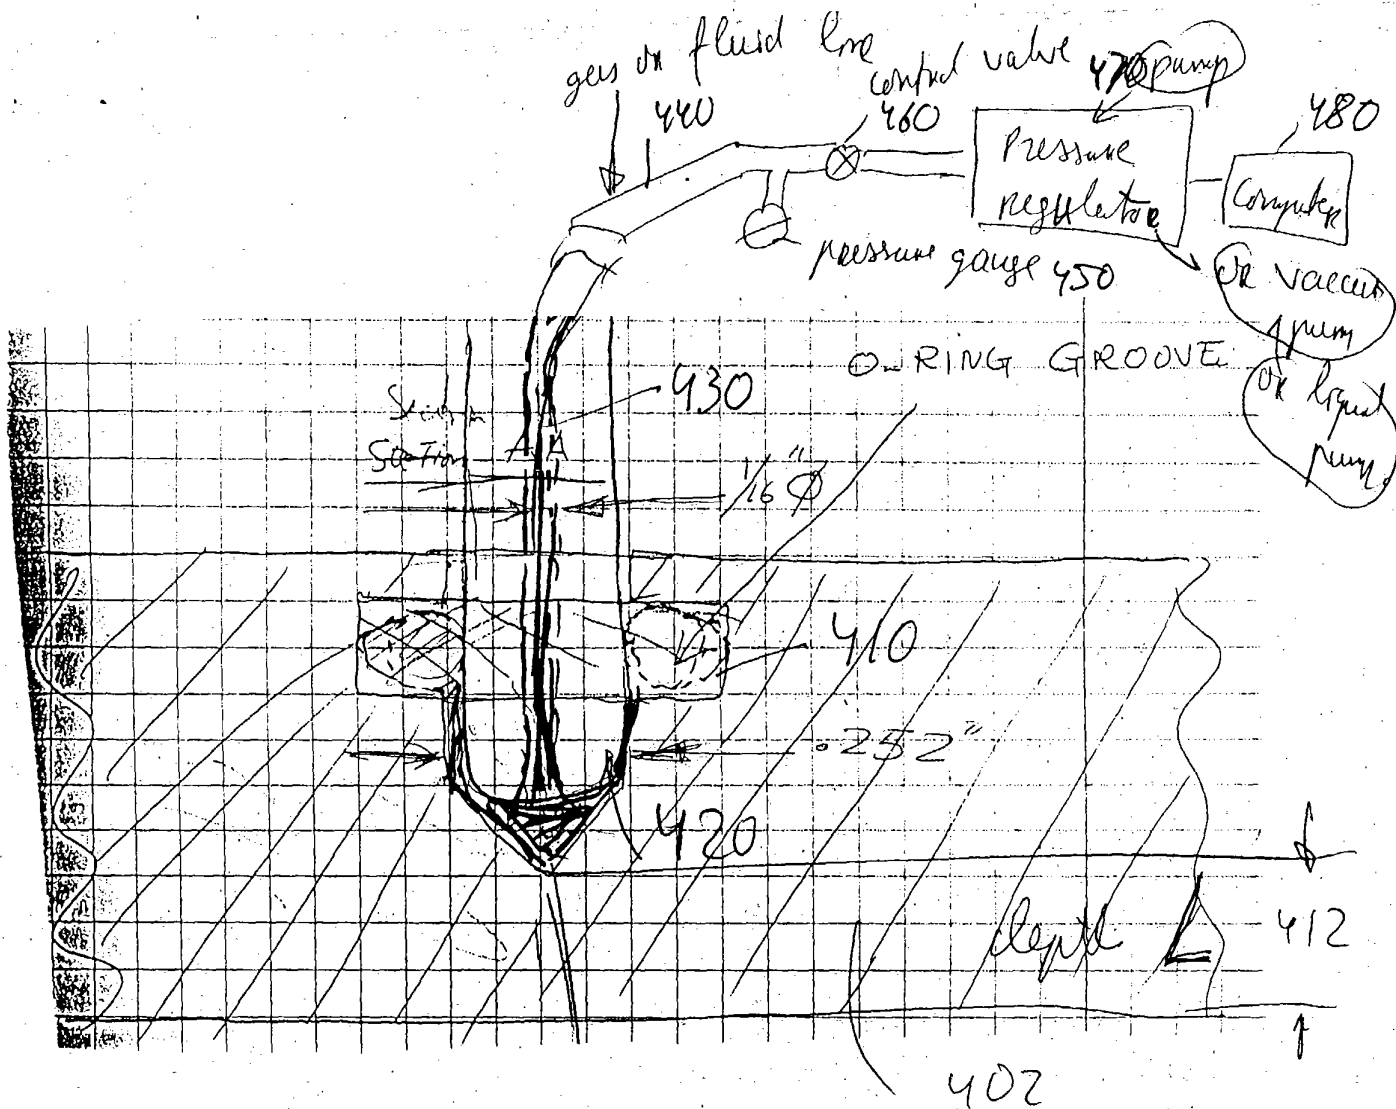 gas or fluid line
440
control valve
460
470 pump
Pressure
regulator
480
Computer
pressure gauge 450
or vacuum
pump
or liquid
pump
O-RING GROOVE
430
Section
A A
1/16" Ø
410
.252"
420
depth L
412
402